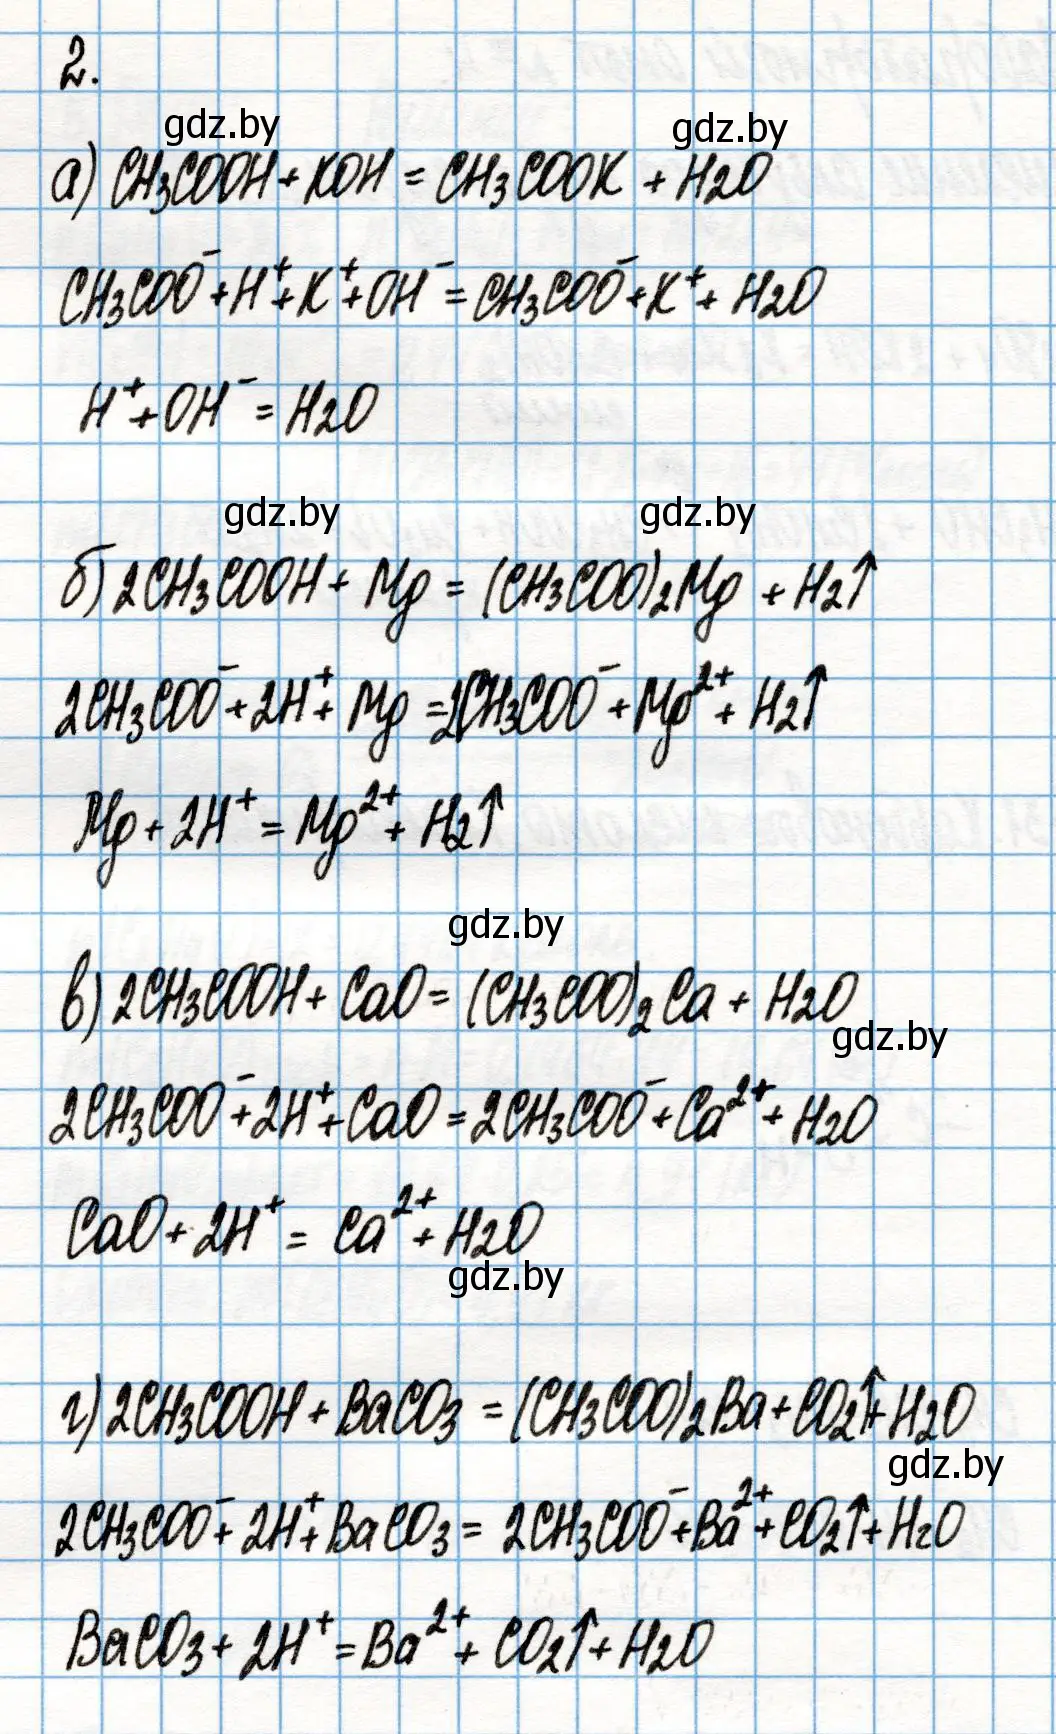 2.
gdz.by gdz.by
а) CH3COOH + KOH = CH3COOK + H2O
CH3COO⁻ + H⁺ + K⁺ + OH⁻ = CH3COO⁻ + K⁺ + H2O
H⁺ + OH⁻ = H2O
gdz.by gdz.by
б) 2CH3COOH + Mg = (CH3COO)2Mg + H2↑
2CH3COO⁻ + 2H⁺ + Mg = 2CH3COO⁻ + Mg²⁺ + H2↑
Mg + 2H⁺ = Mg²⁺ + H2↑
gdz.by
в) 2CH3COOH + CaO = (CH3COO)2Ca + H2O
gdz.by
2CH3COO⁻ + 2H⁺ + CaO = 2CH3COO⁻ + Ca²⁺ + H2O
CaO + 2H⁺ = Ca²⁺ + H2O
gdz.by
г) 2CH3COOH + BaCO3 = (CH3COO)2Ba + CO2↑ + H2O
gdz.by
2CH3COO⁻ + 2H⁺ + BaCO3 = 2CH3COO⁻ + Ba²⁺ + CO2↑ + H2O
BaCO3 + 2H⁺ = Ba²⁺ + CO2↑ + H2O